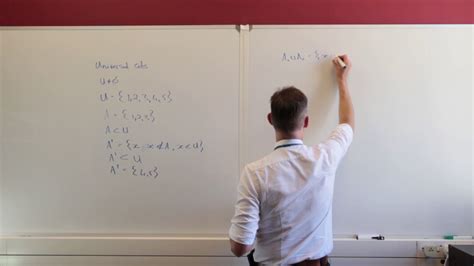 Universal sets
U≠∅
U = {1,2,3,4,5}
A = {1,2,3}
A ⊂ U
A' = {x : x ∉ A, x ∈ U}
A' ⊂ U
A' = {4,5}